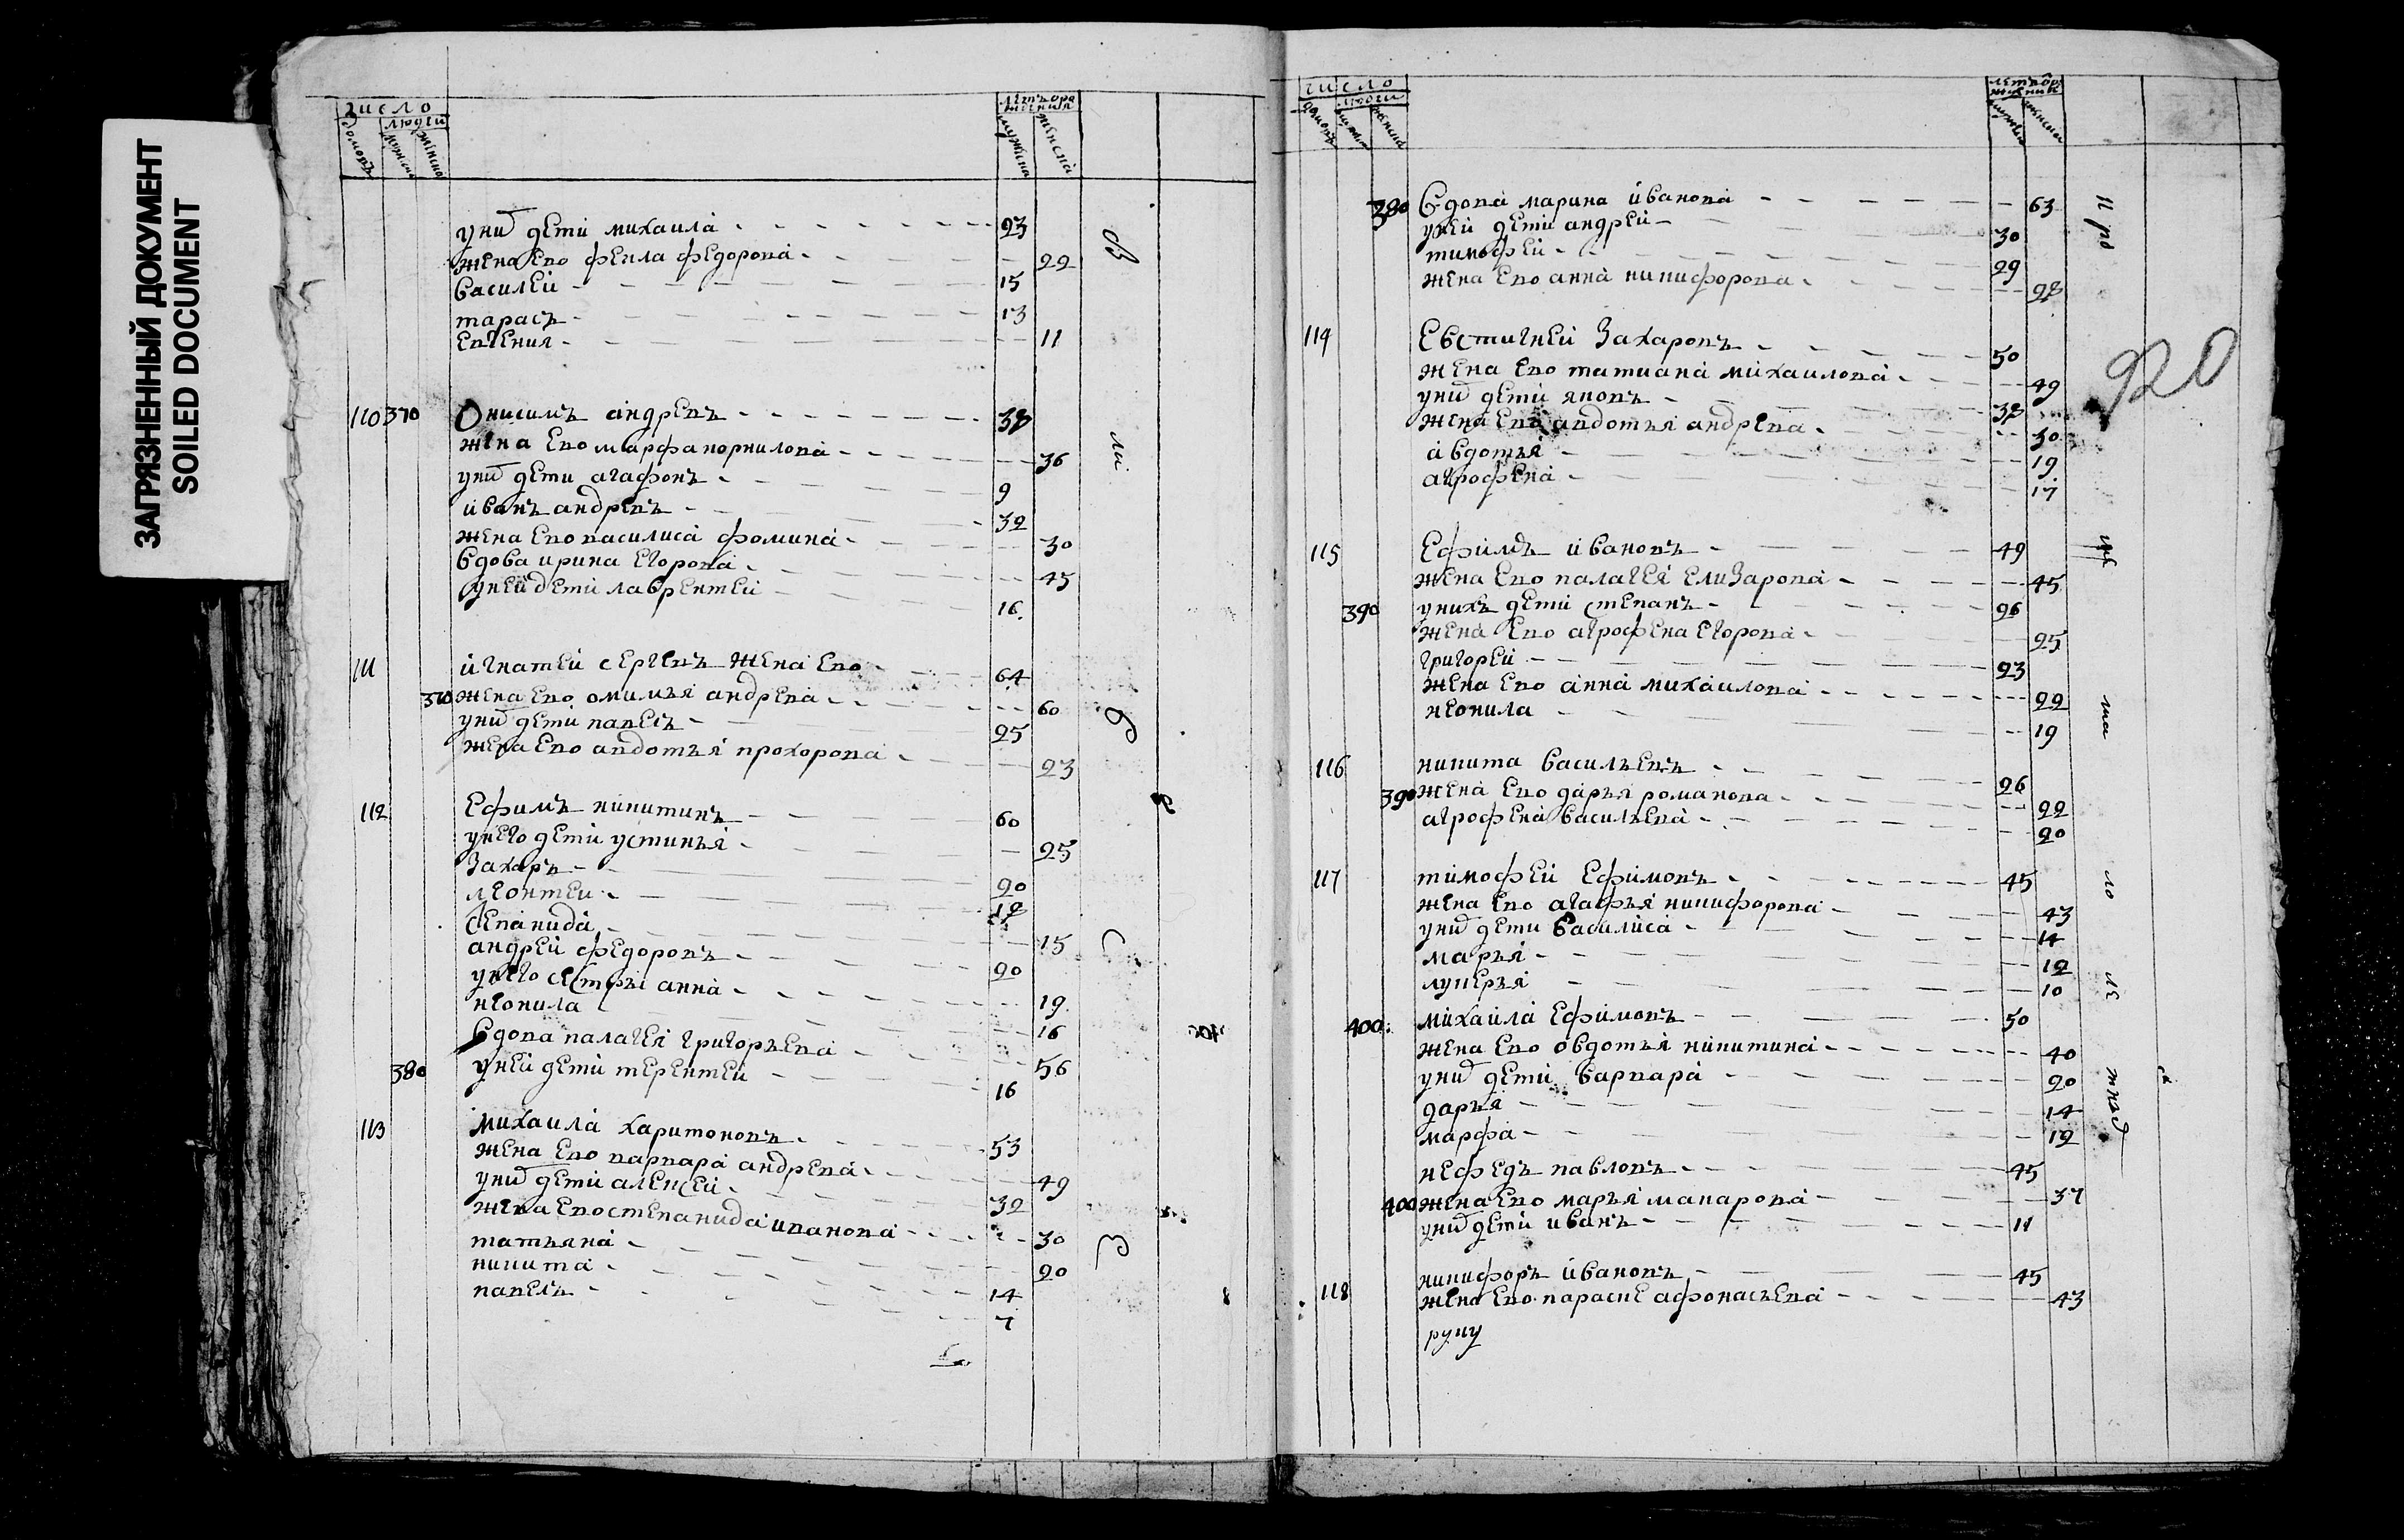 ЗАГРЯЗНЕННЫЙ ДОКУМЕНТ
SOILED DOCUMENT
число
людей
домовъ
летъ от рождения
мужска
женска
у них дети михаила 23
жена ево фекла федорова 22
василей 15
тарасъ 13
евгения 11
110 370 Онисимъ андревъ 38
жена ево марфа корнилова 36
у них дети агафонъ 9
иванъ андревъ 32
жена ево василиса фомина 30
вдова ирина егорова 45
у ней дети лаврентей 16
111 игнатей сергевъ жена ево 64
370 жена ево омимья андрева 60
у них дети павелъ 25
жена ево авдотья прохорова 23
112 Ефимъ никитинъ 60
у него дети устинья 25
захаръ 20
леонтеи 18
степанида 15
андрей федоровъ 20
у него сестры анна 19
неонила 16
вдова палагея григорьева 56
380 у ней дети терентей 16
113 михаила харитоновъ 53
жена ево варвара андрева 49
у них дети алексей 32
жена ево степанида иванова 30
татьяна 20
никита 14
павелъ 7
число
людей
летъ от рождения
380 вдова марина иванова 63
у ней дети андрей 30
тимофей 29
жена ево анна никифорова 28
114 Евстигней Захаровъ 50
жена ево татиана михаилова 49
у них дети яковъ 32
жена ево авдотья андрева 30
авдотья 19
агрофена 17
920
115 Ефимъ ивановъ 49
жена ево палагея елизарова 45
390 у нихъ дети степанъ 26
жена ево агрофена егорова 25
григорей 23
жена ево анна михаилова 22
неонила 19
116 никита васильевъ 26
390 жена ево дарья романова 22
агрофена васильева 20
117 тимофей Ефимовъ 45
жена ево агафья никифорова 43
у них дети василиса 14
марья 12
лукерья 10
400 михаила Ефимовъ 50
жена ево овдотья никитина 40
у них дети варвара 20
дарья 14
марфа 12
нефедъ павловъ 45
400 жена ево марья макарова 37
у них дети иванъ 11
118 никифоръ ивановъ 45
жена ево параске афонасьева 43
руку